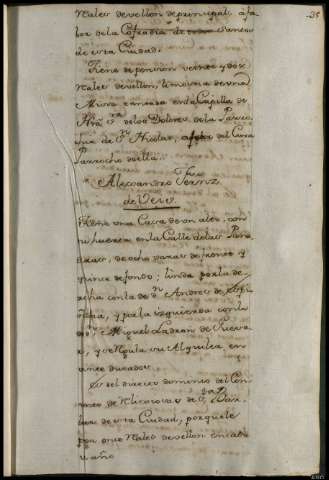 35
reales de vellon de principal, a fa
bor de la Cofradia de
de esta Ciudad.
Tiene de pension veinte y dos
reales de vellon, limosna de una
Misa cantada en la Capilla de
Nra. Sra. de los Dolores de la Parro
quia de Sn. Nicolas, a favor del Cura
Parrocho de ella.
Alexandro Fernz.
de Vero.
Tiene una Casa de un alto, con
su huerta en la Calle de las
de ocho varas de frente y
quince de fondo; linda por la de
recha con la de Dn. Andres de
y por la izquierda con la
de Dn. Miguel Ladron de Gueva
ra, y regula su Alquiler, en
once ducados.
Es del directo dominio del Con
vento de Religiosas de Sta. Bar
bara de esta Ciudad, por que le
paga once reales de vellon en cada
un año